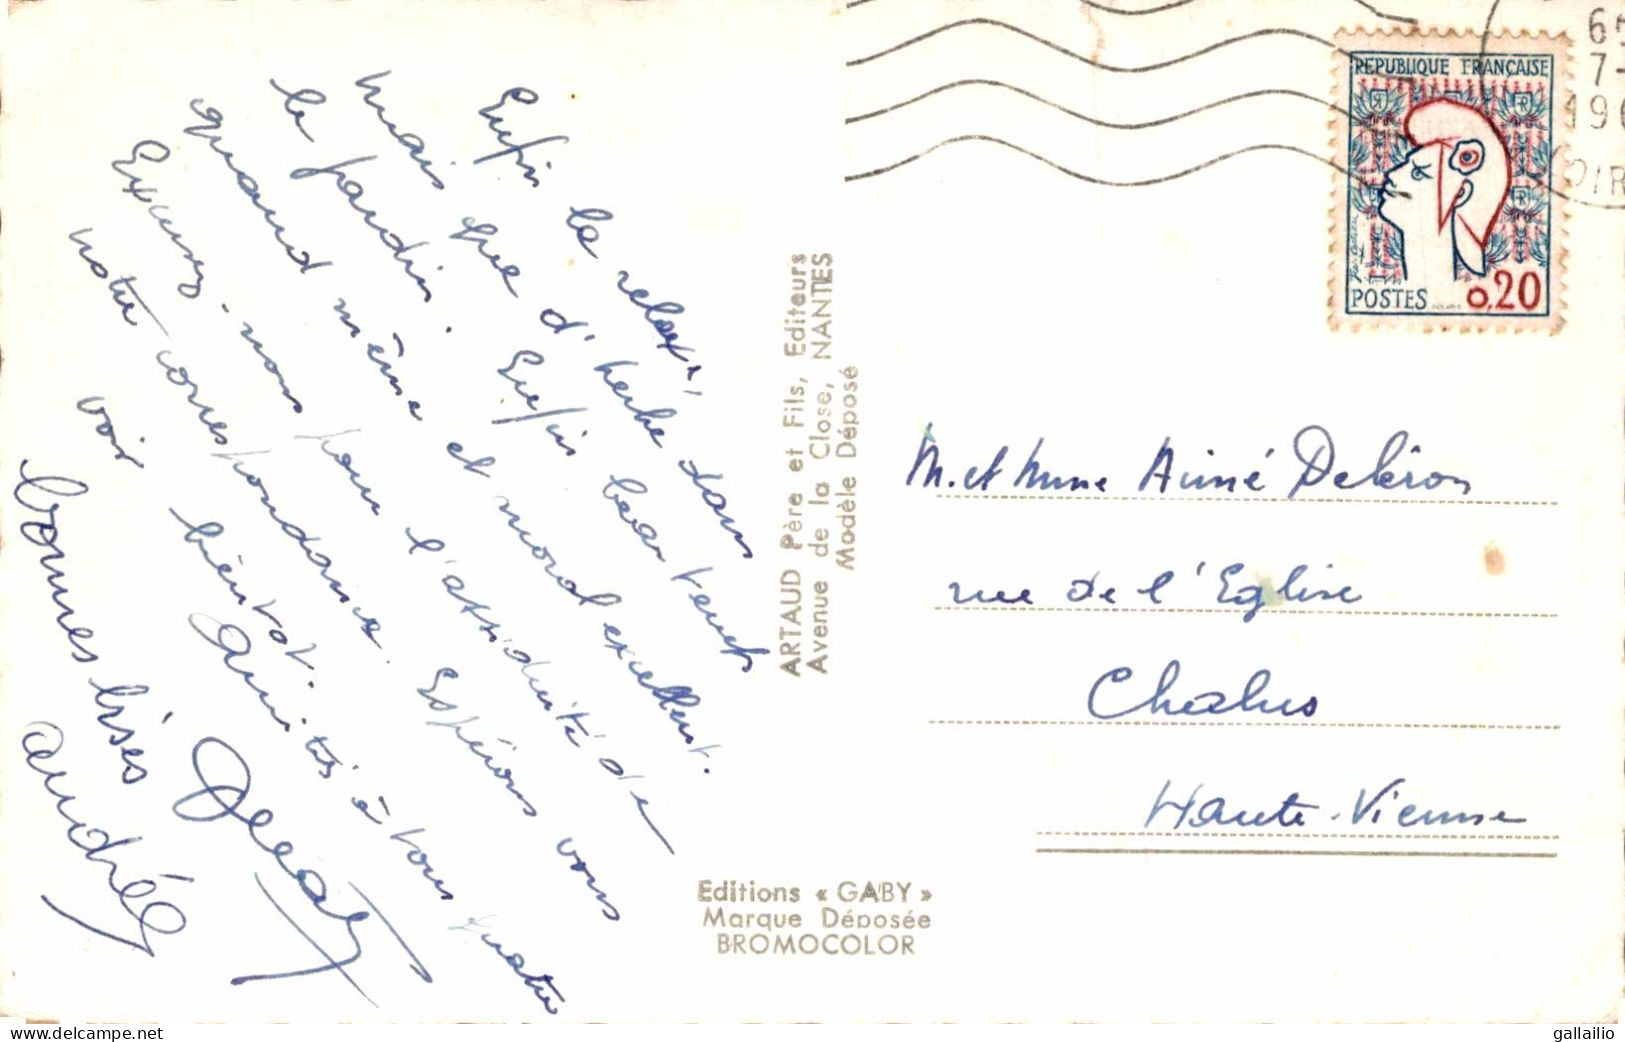 Enfin la relax",
mais que d'herbe dans
le jardin. Enfin beau temps
quand même et moral excellent.
Excusez-nous pour l'assiduité de
notre correspondance. Espérons vous
voir bientôt. Amitiés à tous quatre
bonnes bises
Andrée
ARTAUD Père et Fils, Editeurs
Avenue de la Close, NANTES
Modèle Déposé
Editions « GABY »
Marque Déposée
BROMOCOLOR
REPUBLIQUE FRANÇAISE
POSTES 0,20
M. et Mme Aimé
rue de l'Eglise
Chalus
Haute-Vienne
delcampe.net
gallailio